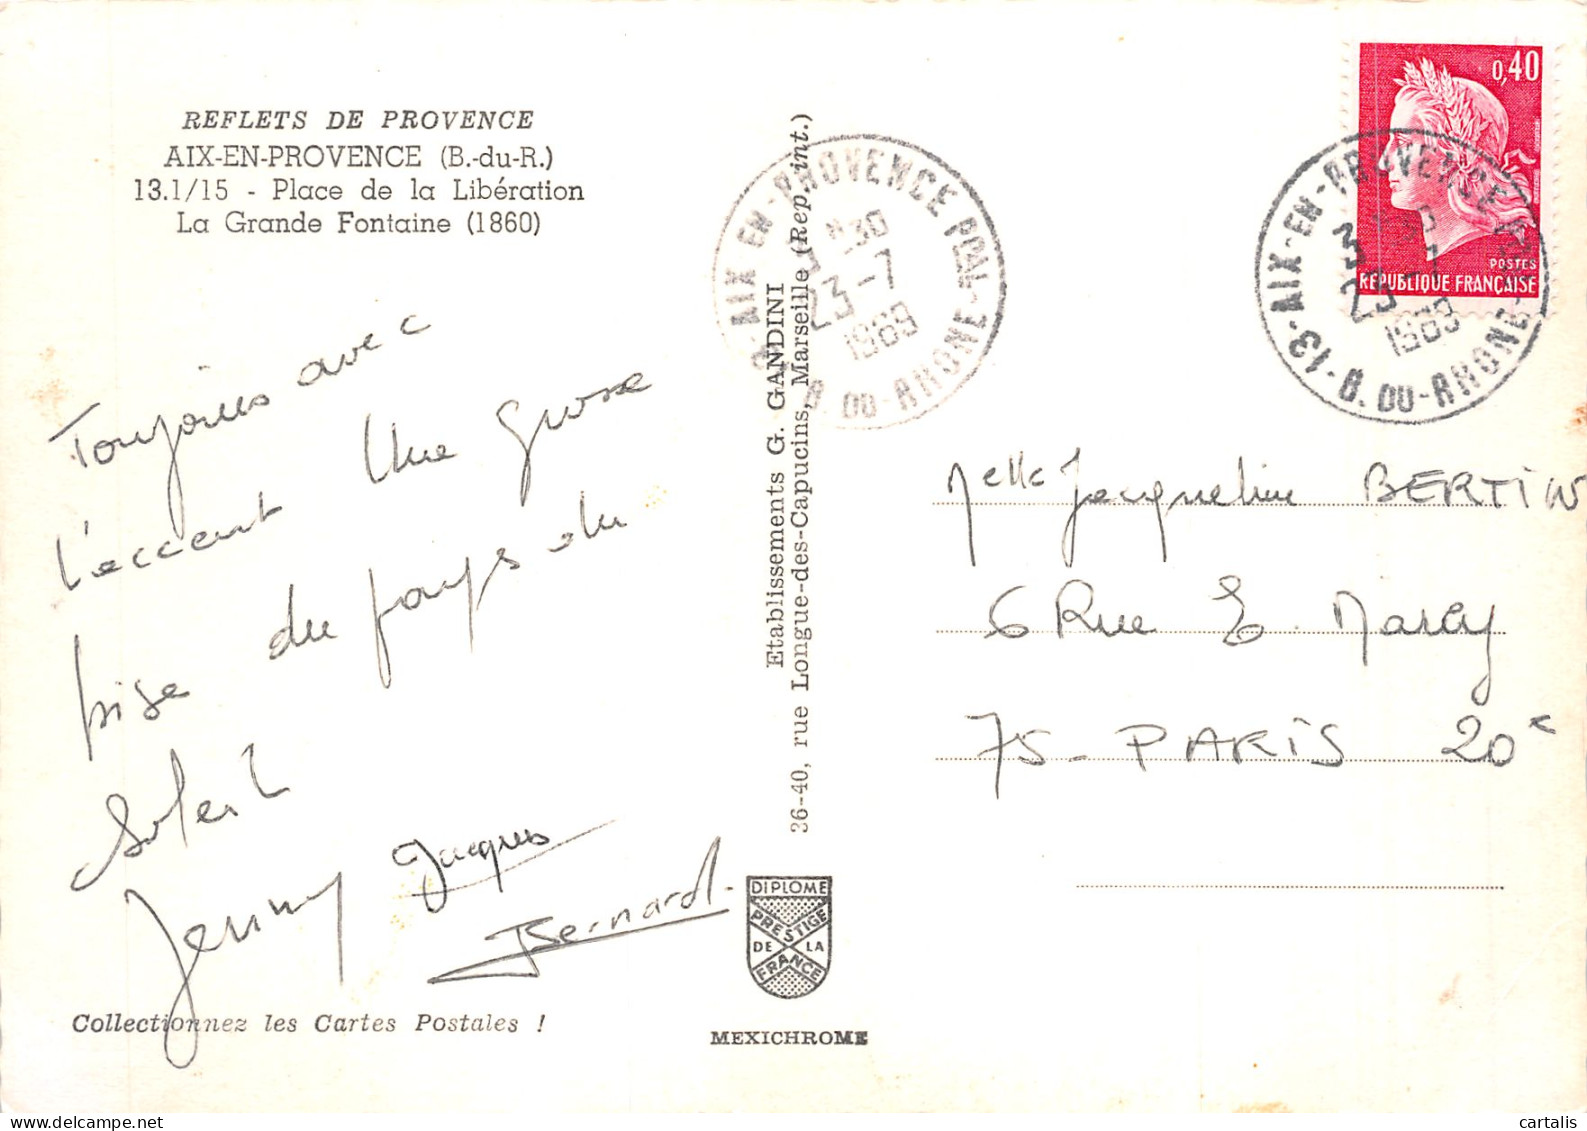 REFLETS DE PROVENCE
AIX-EN-PROVENCE (B.-du-R.)
13.1/15 - Place de la Libération
La Grande Fontaine (1860)
Toujours avec
l'accent Une grosse
bise du pays du
Soleil
Jenny Jacques
Bernard
Collectionnez les Cartes Postales !
Etablissements G. GANDINI
36-40, rue Longue-des-Capucins, Marseille (Rep. int.)
DIPLOME
PRESTIGE
DE LA
FRANCE
MEXICHROME
13 - AIX-EN-PROVENCE PPAL - B. DU-RHONE
3 H 30
23 - 7
1969
0,40
POSTES
REPUBLIQUE FRANÇAISE
13 - AIX-EN-PROVENCE PPAL - B. DU-RHONE
3 H 30
23 - 7
1969
Melle Jacqueline BERTIN
6 Rue E. Marey
75 - PARIS 20e
cartalis